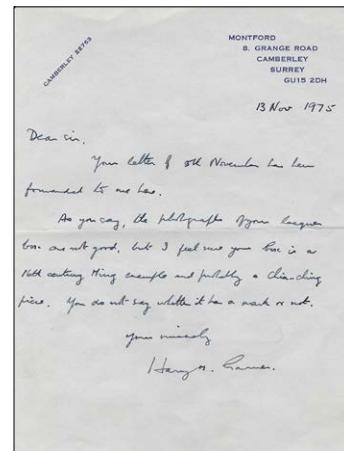 CAMBERLEY 22763
MONTFORD
8, GRANGE ROAD
CAMBERLEY
SURREY
GU15 2DH
13 Nov 1975
Dear Sir,
Your letter of 5th November has been
forwarded to me here.
As you say, the photographs of your lacquer
box are not good, but I feel sure your box is a
16th century Ming example and probably a Chia-ching
piece. You do not say whether it has a mark or not.
yours sincerely
Harry M. Garner.